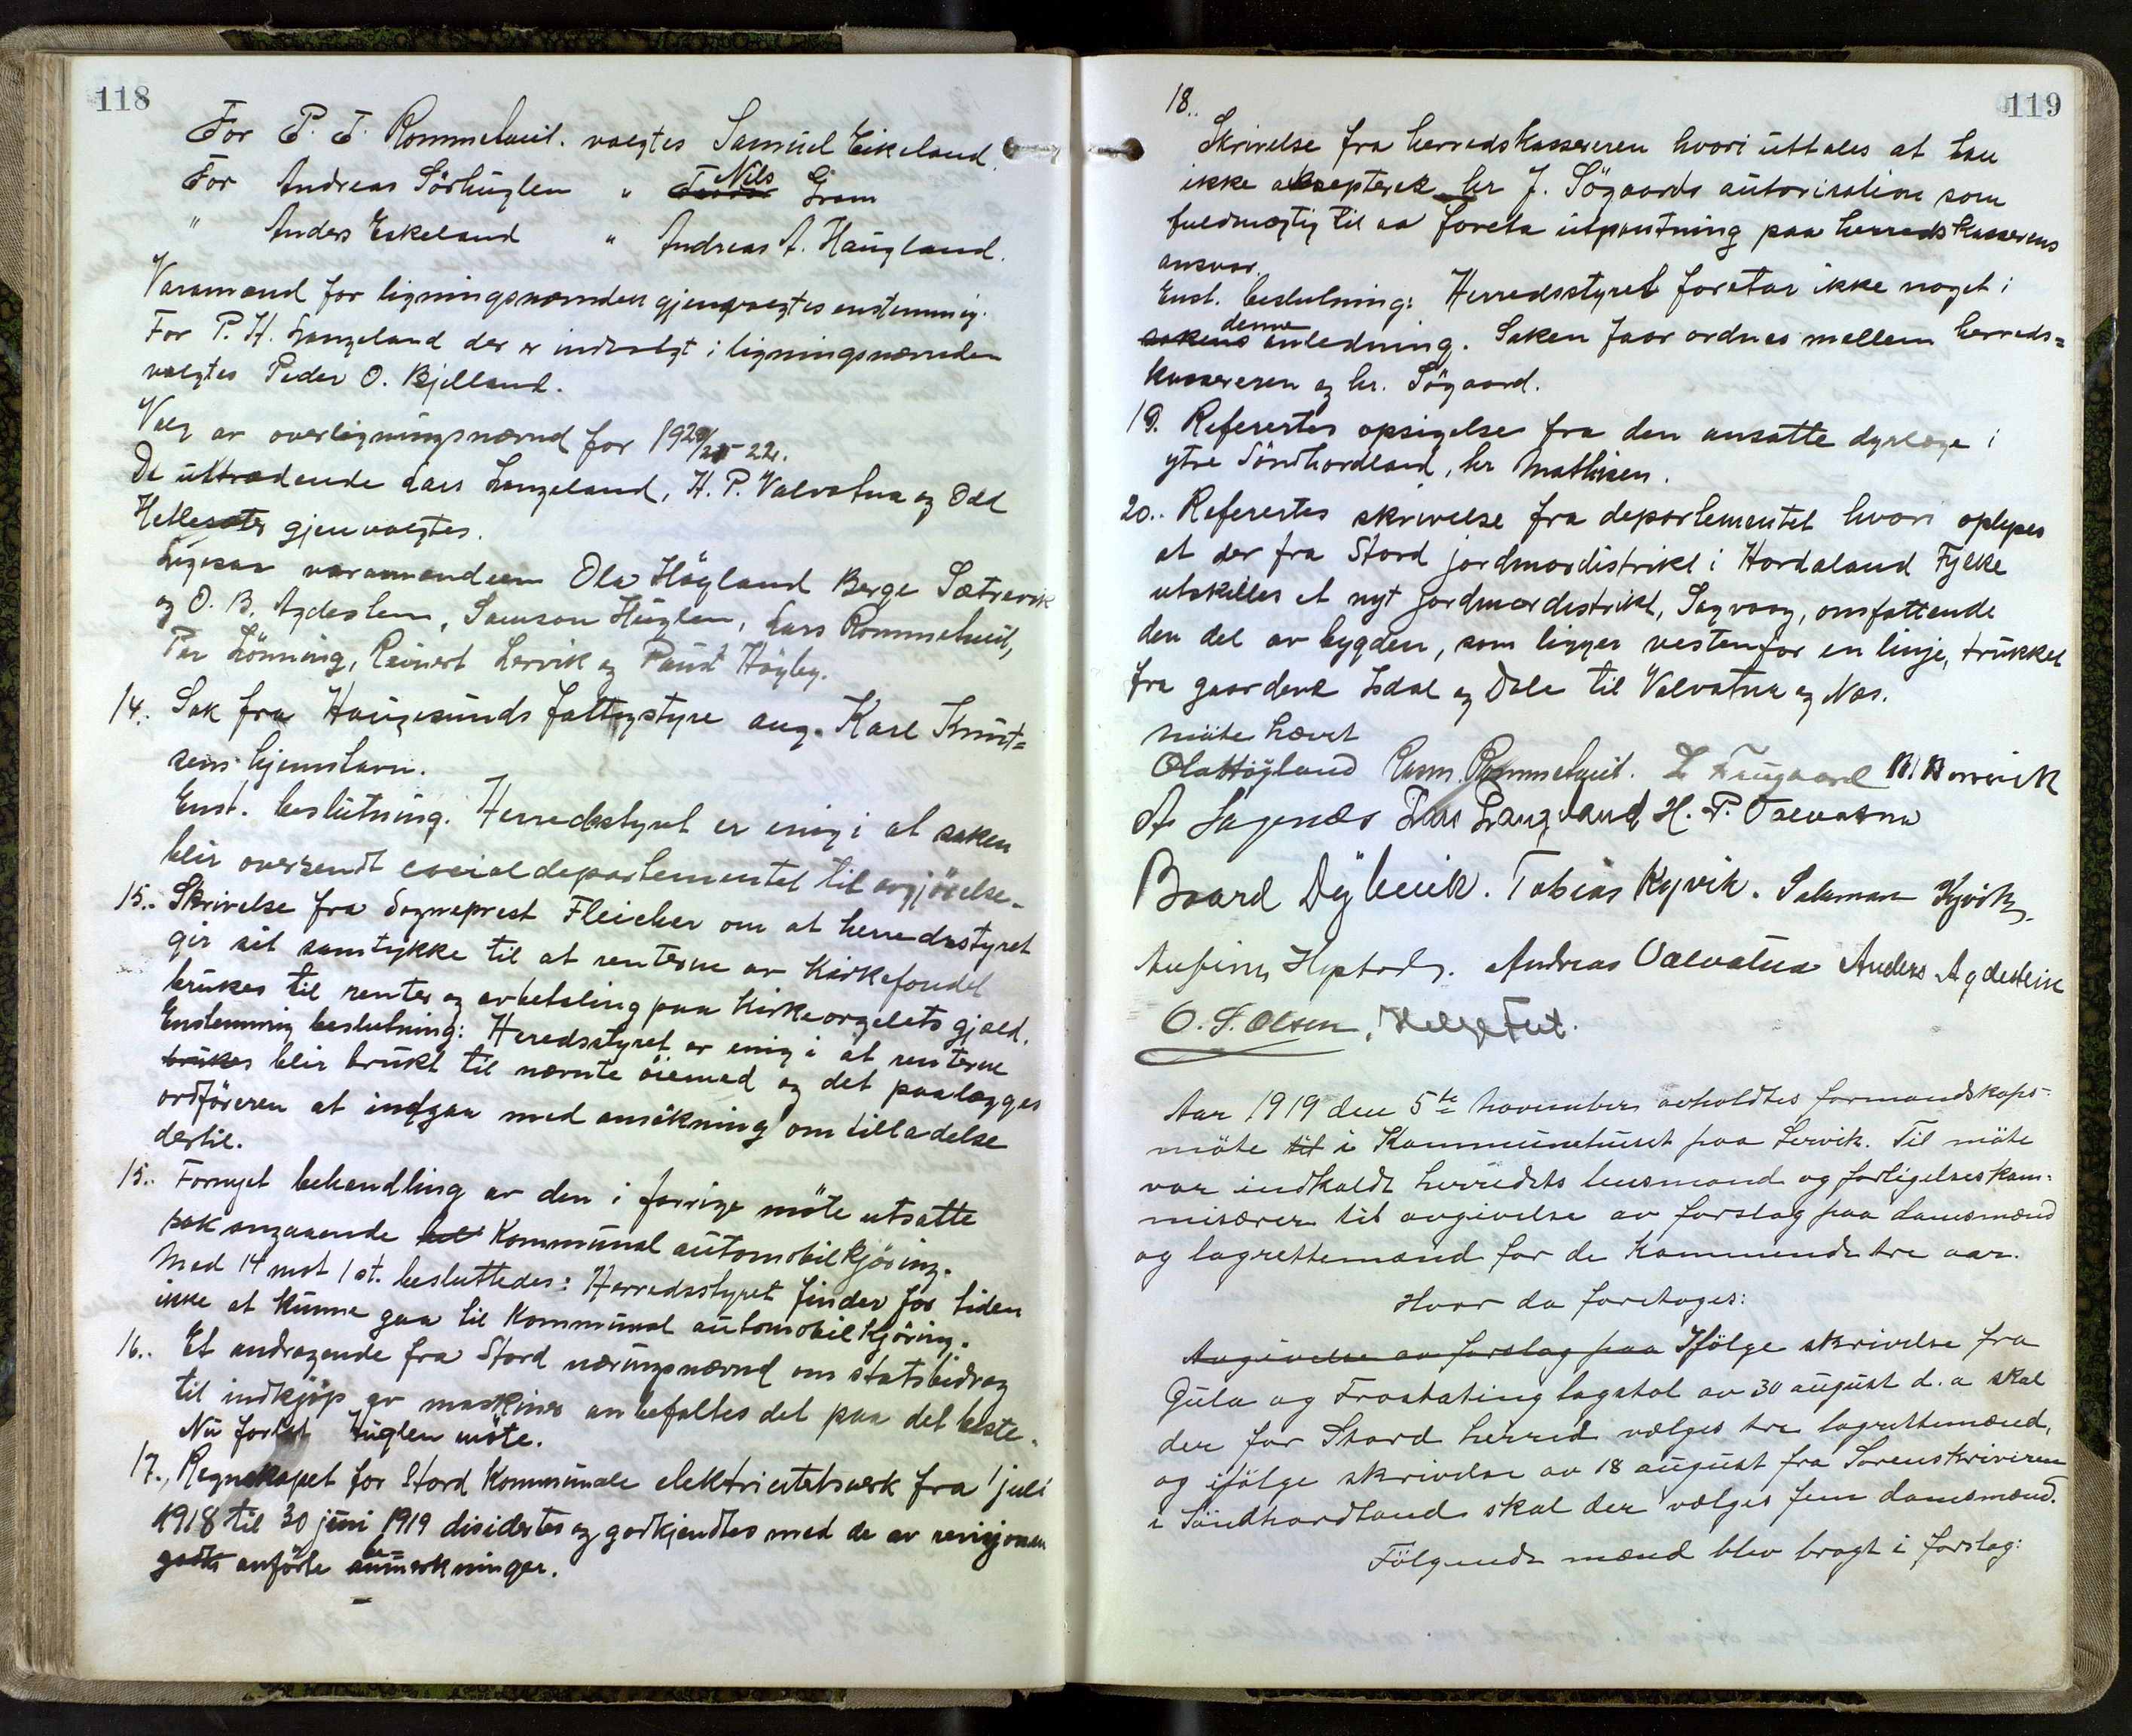 118
For P. T. Rommetveit. valgtes Samuel Eikeland.
For Andreas Sörhuglen " Nils Gram
" Anders Eskeland " Andreas A. Haugland.
Varamænd for ligningsnævnden gjenvalgtes enstemmig.
For P. H. Langeland der er indvalgt i ligningsnævnden
valgtes Peder O. Bjelland.
Valg av overligningsnævnd for 1920/21-22.
De uttrædende Lars Langeland, H. P. Valvatna og Odd
Hellesæter gjenvalgtes.
Ligesaa varamændene Ola Högland Berge Sætrevik
og O. B. Agdestein, Samson Huglen, Lars Rommetveit,
Per Lönning, Reinert Lervik og Paust Högby.
14. Sak fra Haugesunds fattigstyre ang. Karl Knut=
sens hjemstavn.
Enst. beslutning. Herredsstyret er enig i at saken
blir oversendt socialdepartementet til avgjörelse.
15. Skrivelse fra Sogneprest Fleicher om at herredsstyret
gir sit samtykke til at renterne av Kirkefondet
brukes til renter og avbetaling paa Kirkeorgelets gjæld.
Enstemmig beslutning: Heredsstyret er enig i at renterne
brukes blir brukt til nævnte öiemed og det paalægges
ordföreren at indgaa med ansökning om tilladelse
dertil.
15. Fornyet behandling av den i forrige möte utsatte
sak angaaende Kommunal automobilkjöring.
Med 14 mot 1 st. besluttedes: Herredsstyret finder for tiden
ikke at kunne gaa til Kommunal automobilkjöring.
16. Et andragende fra Stord næringsnævnd om statsbidrag
til indkjöp av maskiner anbefaltes det paa det beste.
Nu forlot Huglen möte.
17. Regnskapet for Stord Kommunale elektricitetsverk fra 1 juli
1918 til 30 juni 1919 disidertes og godkjendtes med de av revisjonen
godk anförte anmerkninger.
119
18.
Skrivelse fra herredskassereren hvori uttales at han
ikke aksepterer hr J. Sögaards autorisation som
fuldmægtig til aa foreta utpantning paa herredskasserens
ansvar.
Enst. beslutning: Herredsstyret foretar ikke noget i
sakens denne anledning. Saken faar ordnes mellem herreds=
kassereren og hr. Sögaard.
19. Refertes opsigelse fra den ansatte dyrlæge i
ytre Söndhordland, hr Mathisen.
20. Refertes skrivelse fra departementet hvori oplyses
at der fra Stord jordmordistrikt i Hordaland Fylke
utskilles et nyt jordmordistrikt, Sagvaag, omfattende
den del av bygden, som ligger vestenfor en linje, trukket
fra gaardene Isdal og Dale til Valvatna og Næs.
Möte hævet
Ola Högland Rasm. Rommetveit.
A Sagenæs Lars Langeland H. P. Valvatna
Baard Dybevik. Tobias Kyvik. Salamon Kyvik.
Andreas Valvatna Anders Agdestein
O. T. Olsen, Helge Fut.
Aar 1919 den 5te november avholdtes formandskaps-
möte til i Kommunehuset paa Lervik. Til möte
var indkaldt herredets lensmand og forligelseskom-
misærer til avgivelse av forslag paa domsmænd
og lagrettemænd for de kommende tre aar.
Hvor da foretoges:
Avgivelse av forslag paa Ifölge skrivelse fra
Gula og Frostating lagstol av 30 august d. a skal
der for Stord herred vælges tre lagrettemænd,
og ifölge skrivelse av 18 august fra Sorenskriveren
i Söndhordland skal der vælges fem domsmænd.
Fölgende mænd blev bragt i forslag: